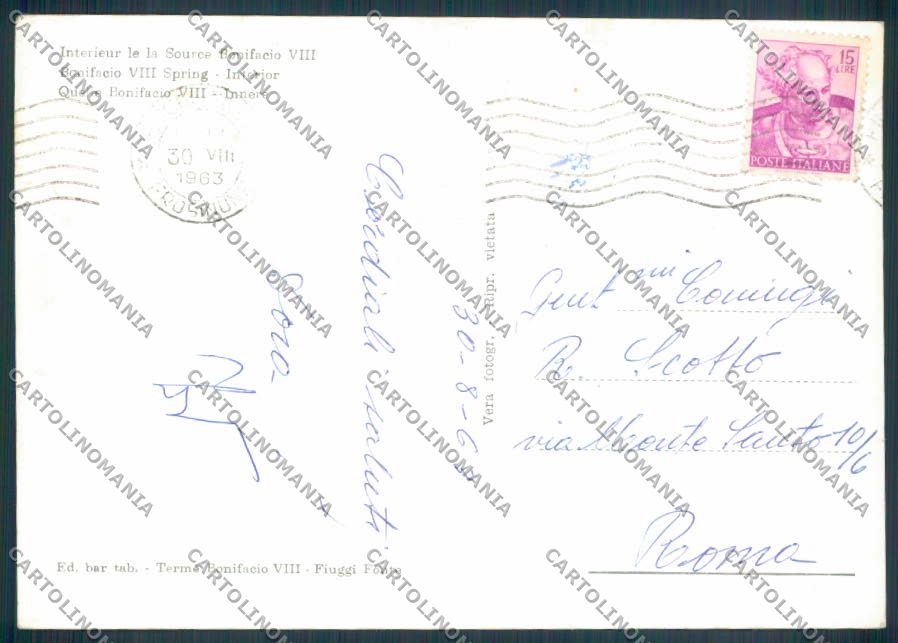 Interieur le la Source Bonifacio VIII
Bonifacio VIII Spring - Interior
Quelle Bonifacio VIII - Innere
30 VIII
1963
FROSINONE
15
LIRE
POSTE ITALIANE
30-8-63
Cordiali saluti
Vera fotogr. Ripr. vietata
Gent mi Coniugi
R. Scotto
via Monte Santo 10/6
Roma
Ed. bar tab. - Terme Bonifacio VIII - Fiuggi Fonte
CARTOLINOMANIA